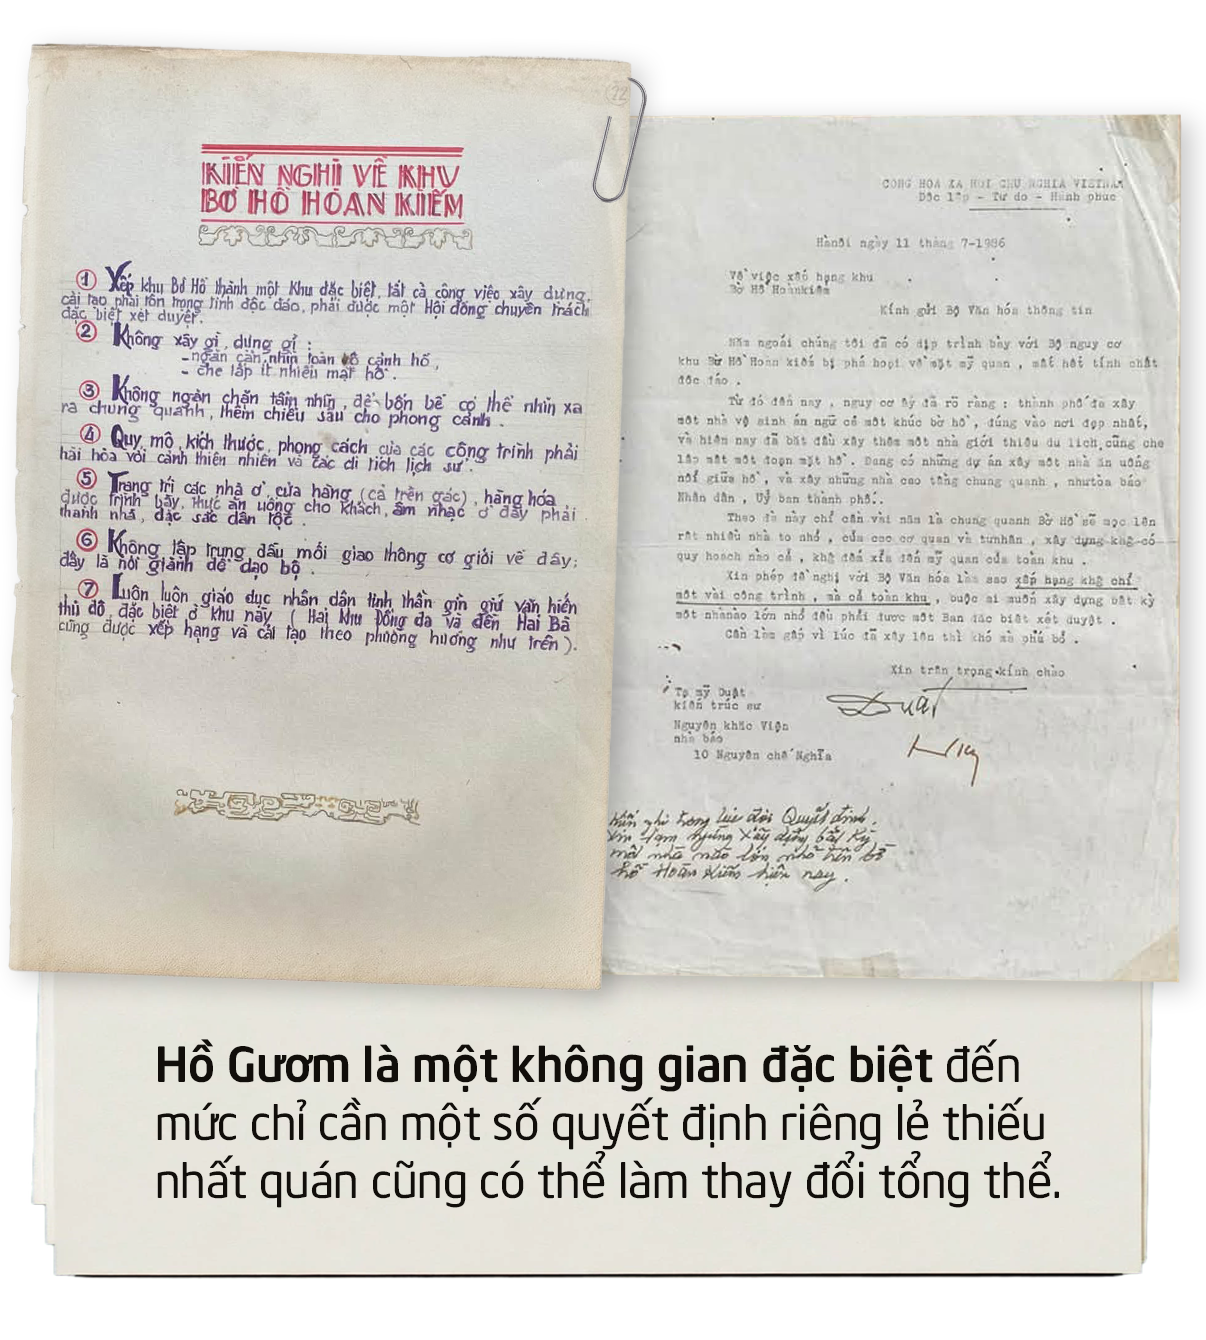 22
KIẾN NGHỊ VỀ KHU
BỜ HỒ HOÀN KIẾM
① Xếp khu Bờ Hồ thành một Khu đặc biệt, tất cả công việc xây dựng,
cải tạo phải tôn trọng tính độc đáo, phải được một Hội đồng chuyên trách
đặc biệt xét duyệt.
② Không xây gì, dựng gì :
- ngăn cản nhìn toàn bộ cảnh hồ,
- che lấp ít nhiều mặt hồ.
③ Không ngăn chặn tầm nhìn, để bốn bề có thể nhìn xa
ra chung quanh, thêm chiều sâu cho phong cảnh.
④ Quy mô, kích thước, phong cách của các công trình phải
hài hòa với cảnh thiên nhiên và các di tích lịch sử.
⑤ Trang trí các nhà ở, cửa hàng (cả trên gác), hàng hóa
được trình bày, thức ăn uống cho khách, âm nhạc ở đây phải
thanh nhã, đặc sắc dân tộc.
⑥ Không tập trung đầu mối giao thông cơ giới về đây;
đây là nơi giành để dạo bộ.
⑦ Luôn luôn giáo dục nhân dân tinh thần gìn giữ văn hiến
thủ đô, đặc biệt ở khu này ( Hai khu Đống đa và đền Hai Bà
cũng được xếp hạng và cải tạo theo phương hướng như trên ).
CỘNG HOA XA HỌI CHU NGHIA VIETNAM
Dôc lập - Tự do - Hanh phuc
Hànội ngày 11 tháng 7-1986
Về việc xếp hạng khu
Bờ Hồ Hoànkiếm
Kính gửi Bộ Văn hóa thông tin
Năm ngoái chúng tôi đã có dịp trình bày với Bộ nguy cơ
khu Bờ Hồ Hoàn kiếm bị phá hoại về mặt mỹ quan , mất hết tính chất
độc đáo .
Từ đó đến nay , nguy cơ ấy đã rõ ràng : thành phố đã xây
một nhà vệ sinh án ngữ cả một khúc bờ hồ, đúng vào nơi đẹp nhất,
và hiện nay đã bắt đầu xây thêm một nhà giới thiệu du lịch cũng che
lấp mất một đoạn mặt hồ. Đang có những dự án xây một nhà ăn uống
nổi giữa hồ , và xây những nhà cao tầng chung quanh , nhưtòa báo
Nhân dân , Uỷ ban thành phố..
Theo đà này chỉ cần vài năm là chung quanh Bờ Hồ sẽ mọc lên
rất nhiều nhà to nhỏ , của các cơ quan và tưnhân , xây dựng khg có
quy hoạch nào cả , khg đếm xỉa đến mỹ quan của toàn khu .
Xin phép đề nghị với Bộ Văn hóa làm sao xếp hạng khg chỉ
một vài công trình , mà cả toàn khu , buộc ai muốn xây dựng bất kỳ
một nhànào lớn nhỏ đều phải được một Ban đặc biệt xét duyệt .
Cần làm gấp vì lúc đã xây lên thì khó mà phá bỏ .
Xin trân trọng kính chào
Tạ mỹ Duật
kiến trúc sư
Duật
Nguyễn khắc Viện
nhà báo
10 Nguyễn chế Nghĩa
Kiến nghị trong lúc đợi Quyết định.
Xin tạm ngừng xây dựng bất kỳ
một nhà nào lớn nhỏ trên bờ
hồ Hoàn Kiếm hiện nay.
Hồ Gươm là một không gian đặc biệt đến
mức chỉ cần một số quyết định riêng lẻ thiếu
nhất quán cũng có thể làm thay đổi tổng thể.